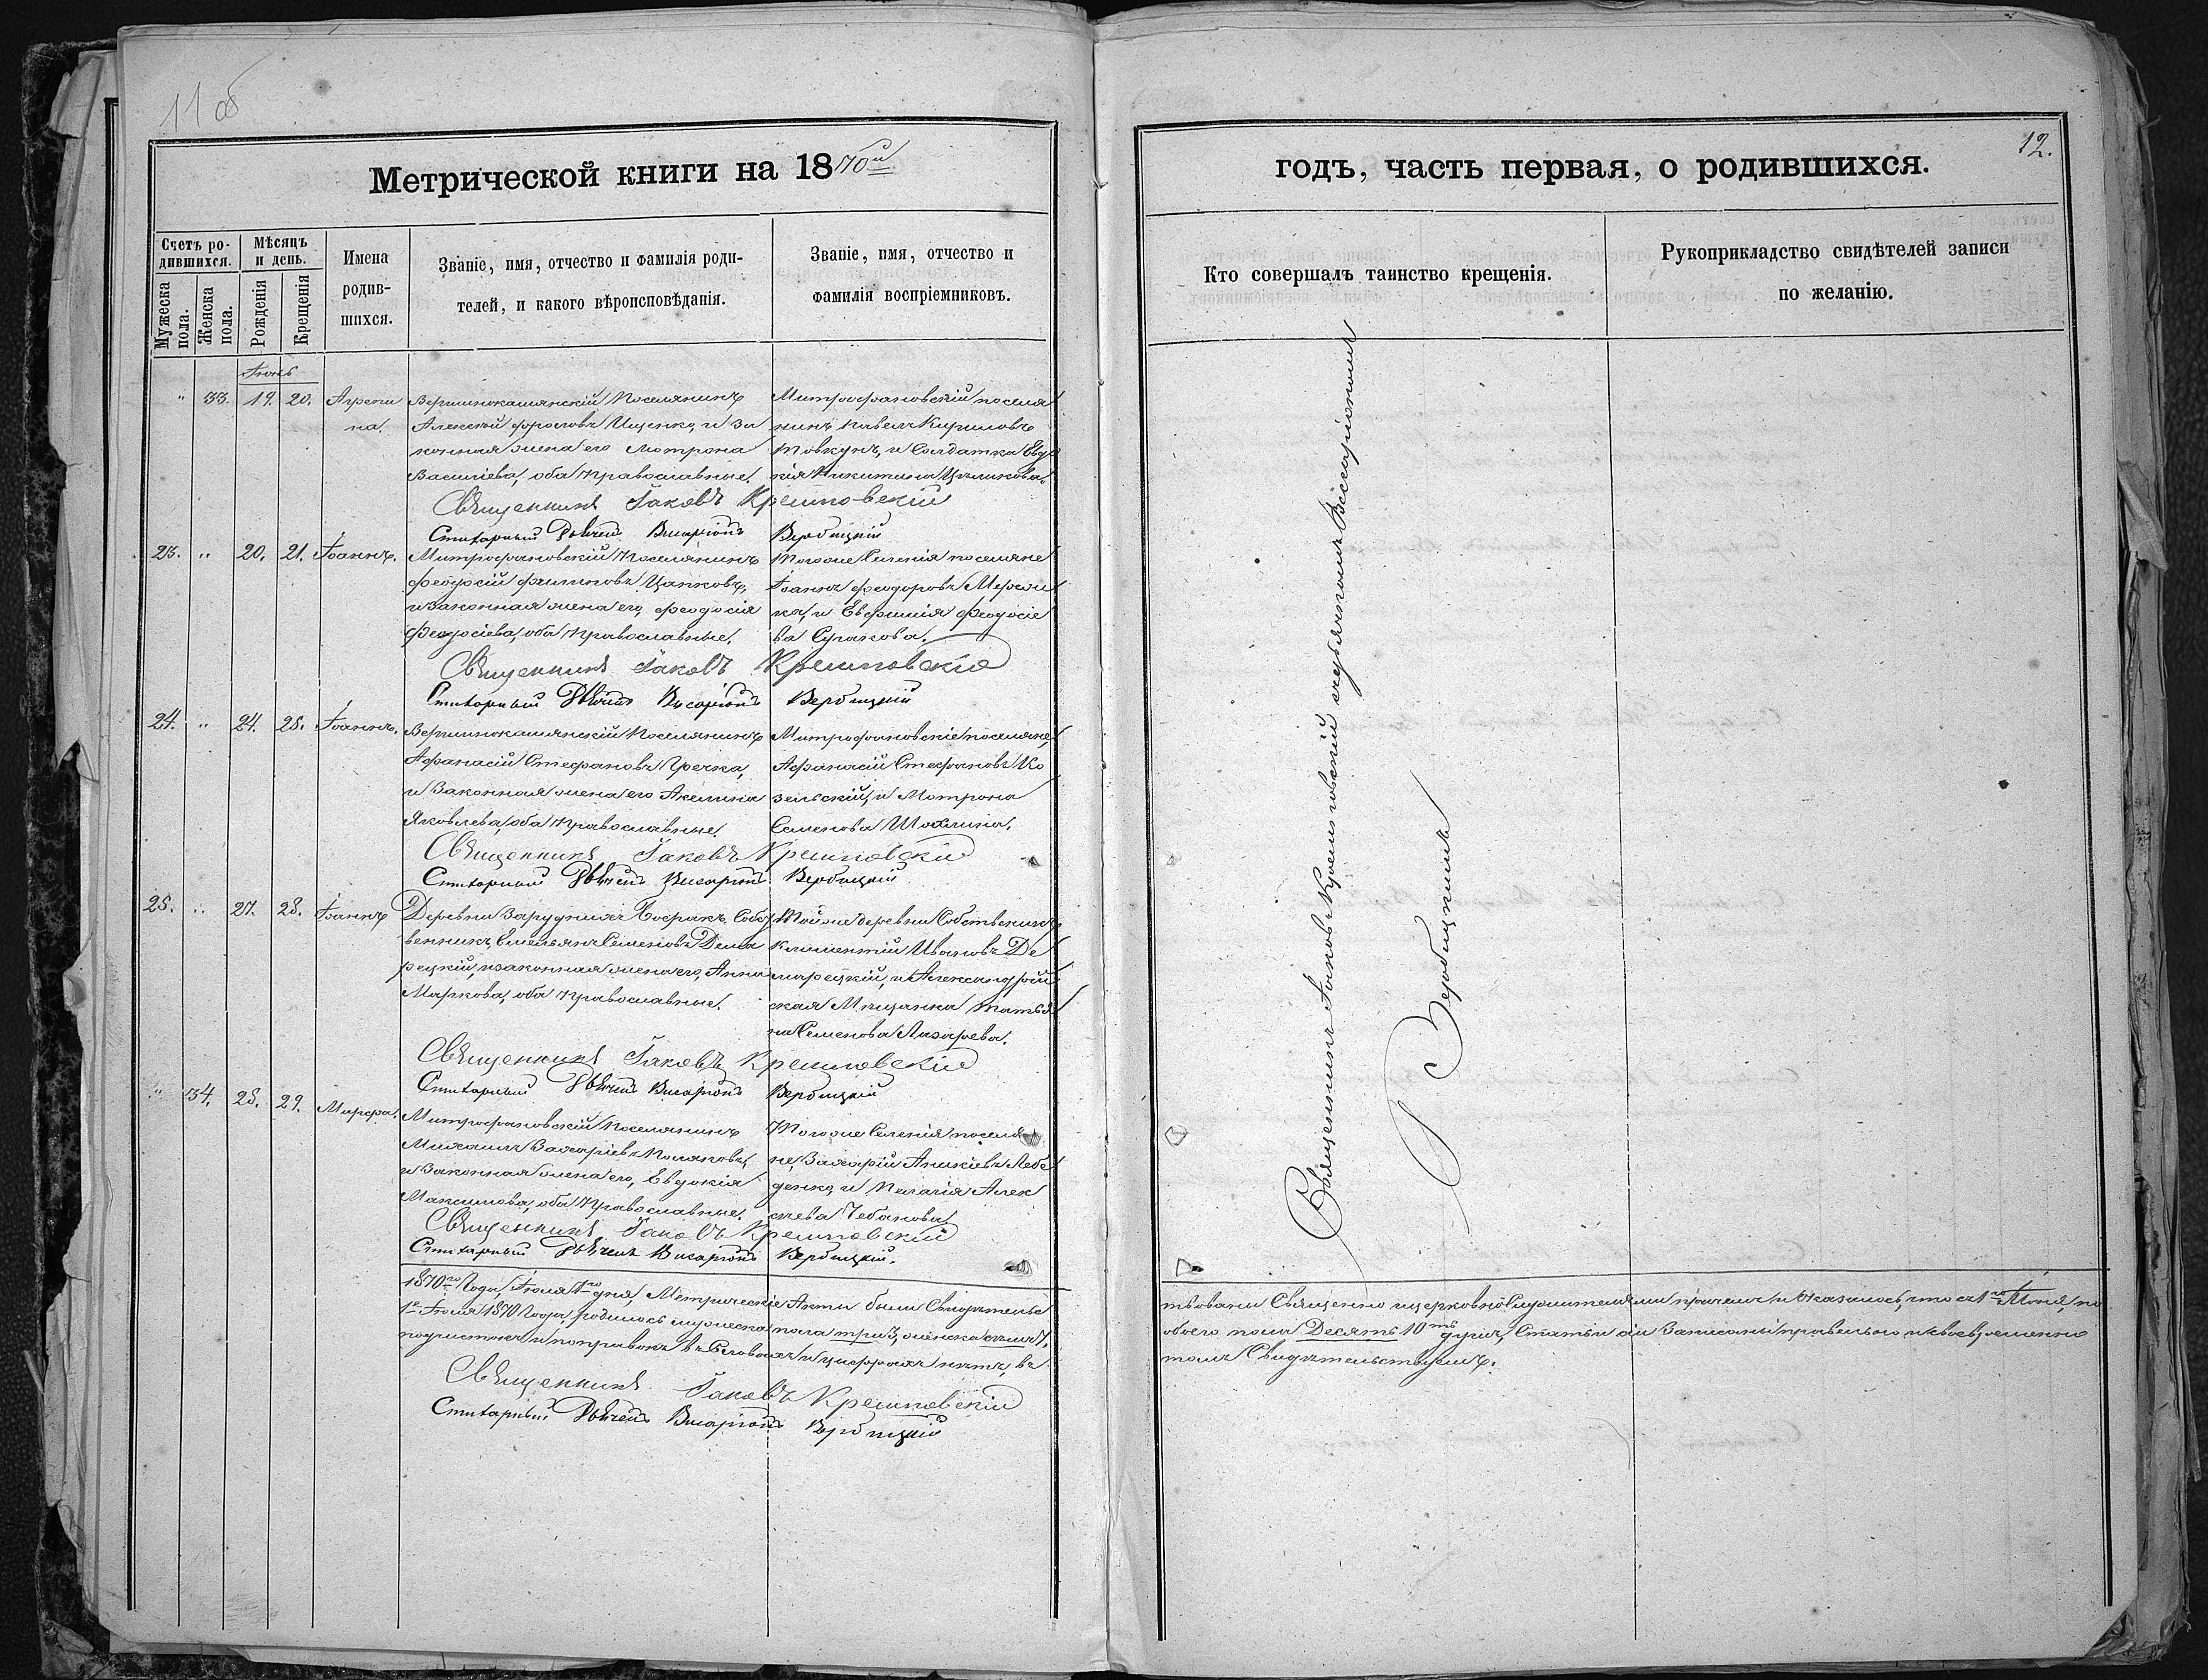 11 об
Метрической книги на 1870й
Счетъ ро-
дившихся.
Мѣсяцъ
и день.
Имена
родив-
шихся.
Званіе, имя, отчество и фамилія роди-
телей, и какого вѣроисповѣданія.
Званіе, имя, отчество и
фамилія воспріемниковъ.
Мужеска
пола.
Женска
пола.
Рожденія
Крещенія
Іюнь
" 33. 19. 20. Агрепи
на.
Вершинокамянскій Поселянинъ
Алексѣй Фроловъ Ищенко, и За
конная жена его Мотрона
Василіева, оба Православные.
Митрофановскій поселя
нинъ Павелъ Кириловъ
Товкунъ, и Солдатка Евдо
кія Никитина
Священникъ Іаковъ Кремповскій
Стихарный Дьячекъ Висаріонъ Вербицкій
23. " 20. 21. Іоаннъ.
Митрофановскій Поселянинъ
Феодосій Филиповъ Цапковъ,
и Законная жена его, Феодосія
Феодосіева, оба Православные.
Тогоже Селенія поселяне
Іоаннъ Феодоровъ
и Евфимія Феодосіе
ва
Священникъ Іаковъ Кремповскій
Стихарный Дьячекъ Висаріонъ Вербицкій
24. " 24. 25. Іоаннъ.
Вершинокамянскій Поселянинъ
Афанасій Стефановъ Гречка,
и Законная жена его Акелина
Яковлева, оба Православные.
Митрофановскіе поселяне,
Афанасій Стефановъ Ко
зельскій, и Мотрона
Семенова
Священникъ Іаковъ Кремповскій
Стихарный Дьячекъ Висаріонъ Вербицкій
25. " 27. 28. Іоаннъ
Деревни Зарудния Собст
венникъ, Емельянъ Семеновъ Дема
рецкій, и законная жена его, Анна
Маркова, оба Православные.
Тойже деревни Собственникъ
Климентій Ивановъ Де
марецкій, и Александрій
ская Мѣщанка Татья
на Семенова Лазарева.
Священникъ Іаковъ Кремповскій
Стихарный Дьячекъ Висаріонъ Вербицкій
" 34. 28. 29. Марфа.
Митрофановскій Поселянинъ
Михаилъ Захаріевъ Поляковъ,
и Законная жена его, Евдокія
Максимова, оба Православные.
Тогоже Селенія поселя
не, Захарій Лебе
денко, и Пелагія Алек
сѣева Чебанова
Священникъ Іаковъ Кремповскій
Стихарный Дьячекъ Висаріонъ Вербицкій.
1870го Года, Іюля 1го дня, Метрическіе Акты были Свидѣтельс
1е Іюля 1870 Года, родилось мужеска пола три 3, женска семь 7,
подчистокъ и поправокъ въ Словахъ и цифрахъ нѣтъ, въ
Священникъ Іаковъ Кремповскій
Стихарный Дьячекъ Висаріонъ Вербицкій
12.
годъ, часть первая, о родившихся.
Кто совершалъ таинство крещенія.
Рукоприкладство свидѣтелей записи
по желанію.
Священникъ Іаковъ Кремповскій съ дьячкомъ Виссаріономъ
Вербицкимъ
твованы Священно и церковнослужителями причемъ и Оказалось, что съ 1го Іюня, по
обоего пола Десять 10ть душъ, Статьи сіи Записаны правельно и своевременно
томъ Свидѣтельствуемъ.